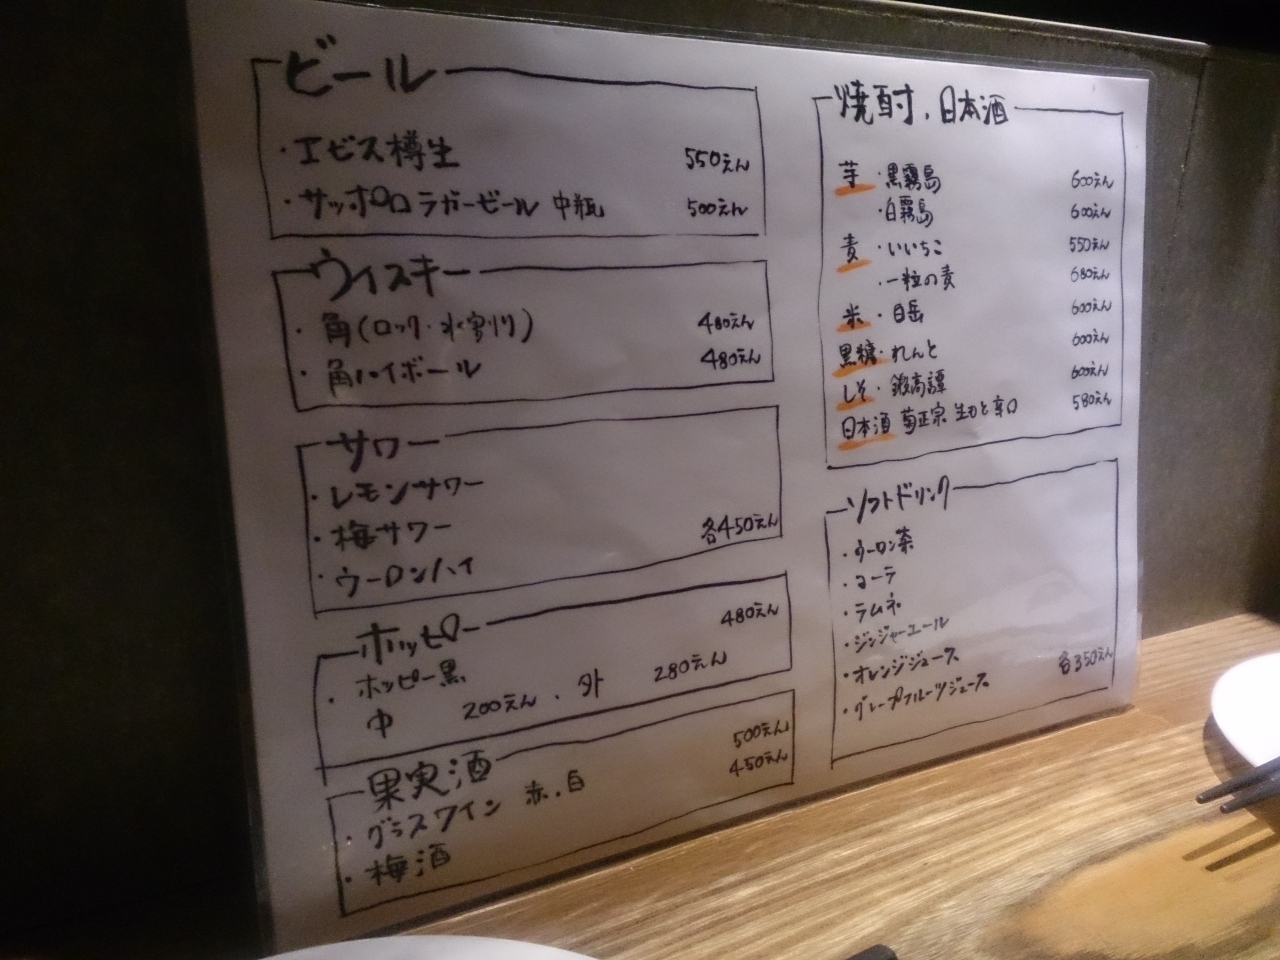 ビール
・エビス樽生 550えん
・サッポロラガービール 中瓶 500えん
ウイスキー
・角(ロック・水割り) 480えん
・角ハイボール 480えん
サワー
・レモンサワー
・梅サワー 各450えん
・ウーロンハイ
ホッピー
・ホッピー黒 480えん
中 200えん ・外 280えん
果実酒
・グラスワイン 赤.白 500えん
・梅酒 450えん
焼酎.日本酒
芋・黒霧島 600えん
・白霧島 600えん
麦・いいちこ 550えん
・一粒の麦 680えん
米・白岳 600えん
黒糖・れんと 600えん
しそ・鍛高譚 600えん
日本酒 菊正宗 生もと辛口 580えん
ソフトドリンク
・ウーロン茶
・コーラ
・ラムネ
・ジンジャーエール
・オレンジジュース 各350えん
・グレープフルーツジュース